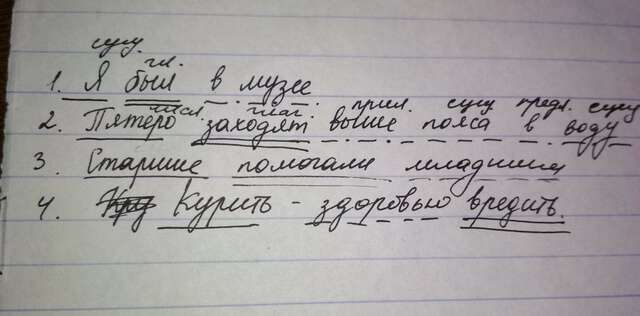 сущ.
гл.
1. Я был в музее
числ. глаг. прил. сущ предл. сущ
2. Пятеро заходят выше пояса в воду
3. Старшие помогали младшим
4. Курить - здоровью вредить.